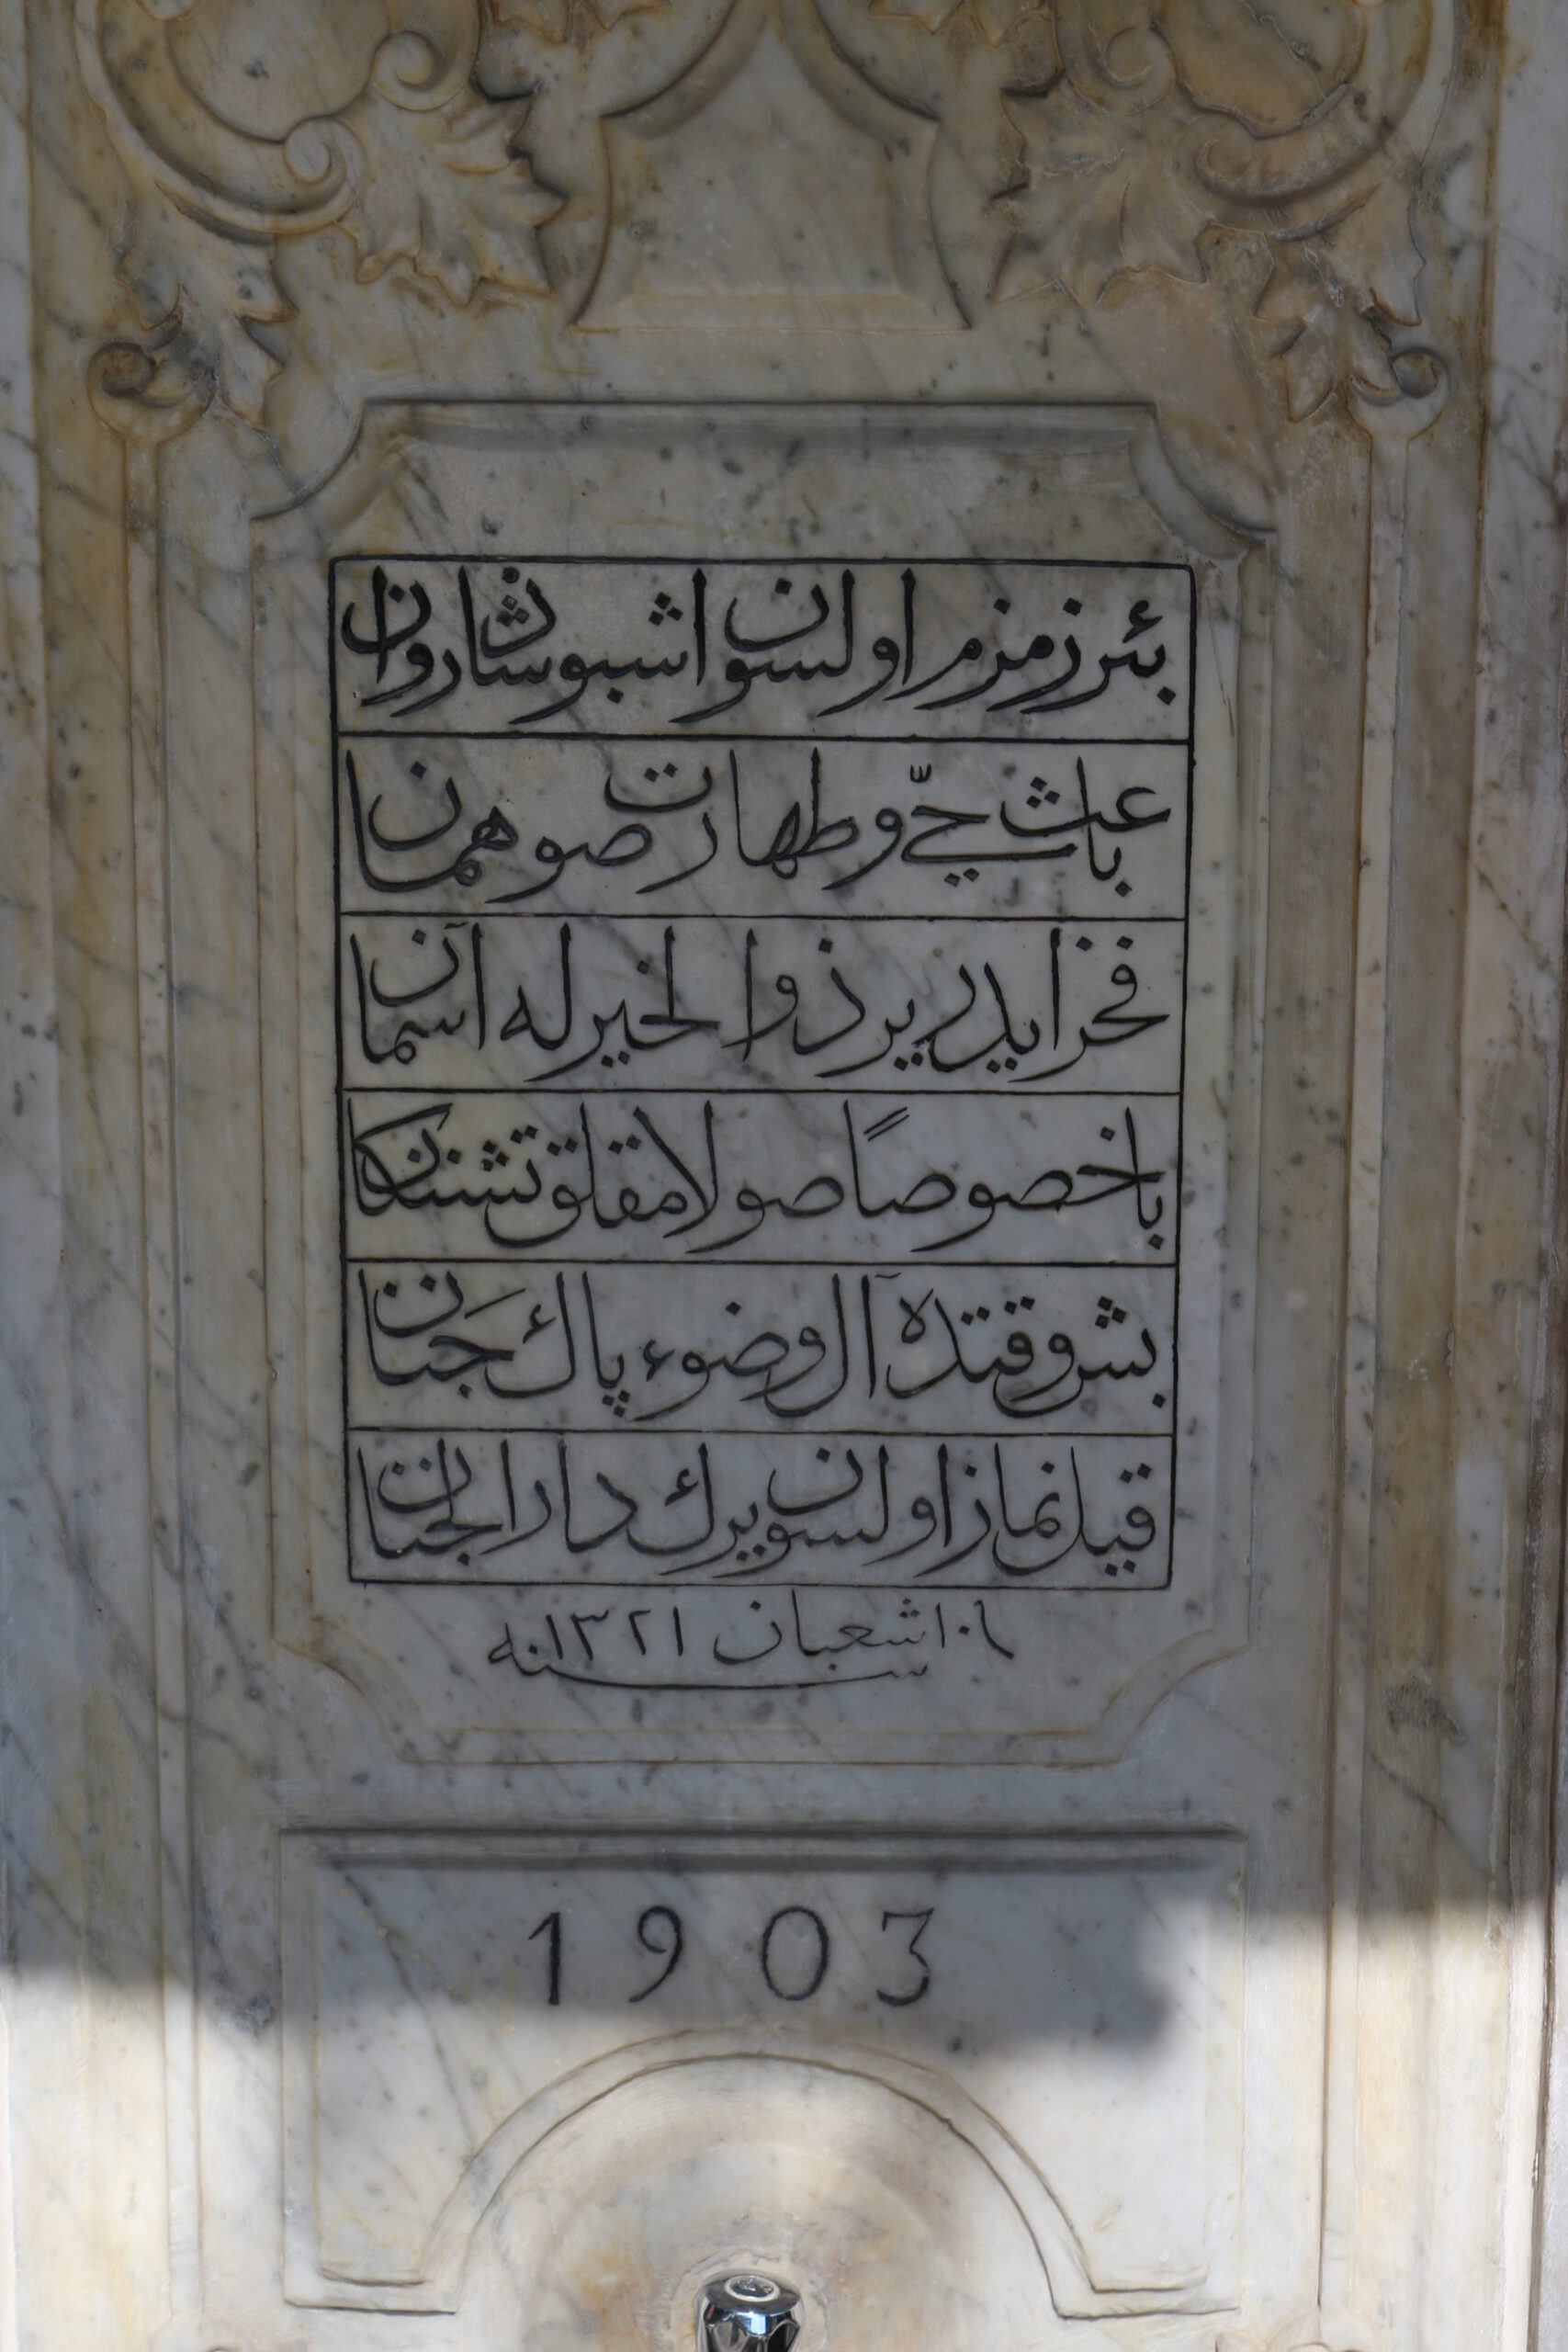 بئر زمزم اولسون اشبو شاذروان
باعث حیّ و طهارت صو همان
فخر ایدر یر ذوالخیرله آسمان
باخصوصاً صولامقلق تشنکان
بش وقتده آل وضوء پاك جَنان
قیل نماز اولسون یرك دار الجنان
١٠ شعبان سنه ١٣٢١
1903